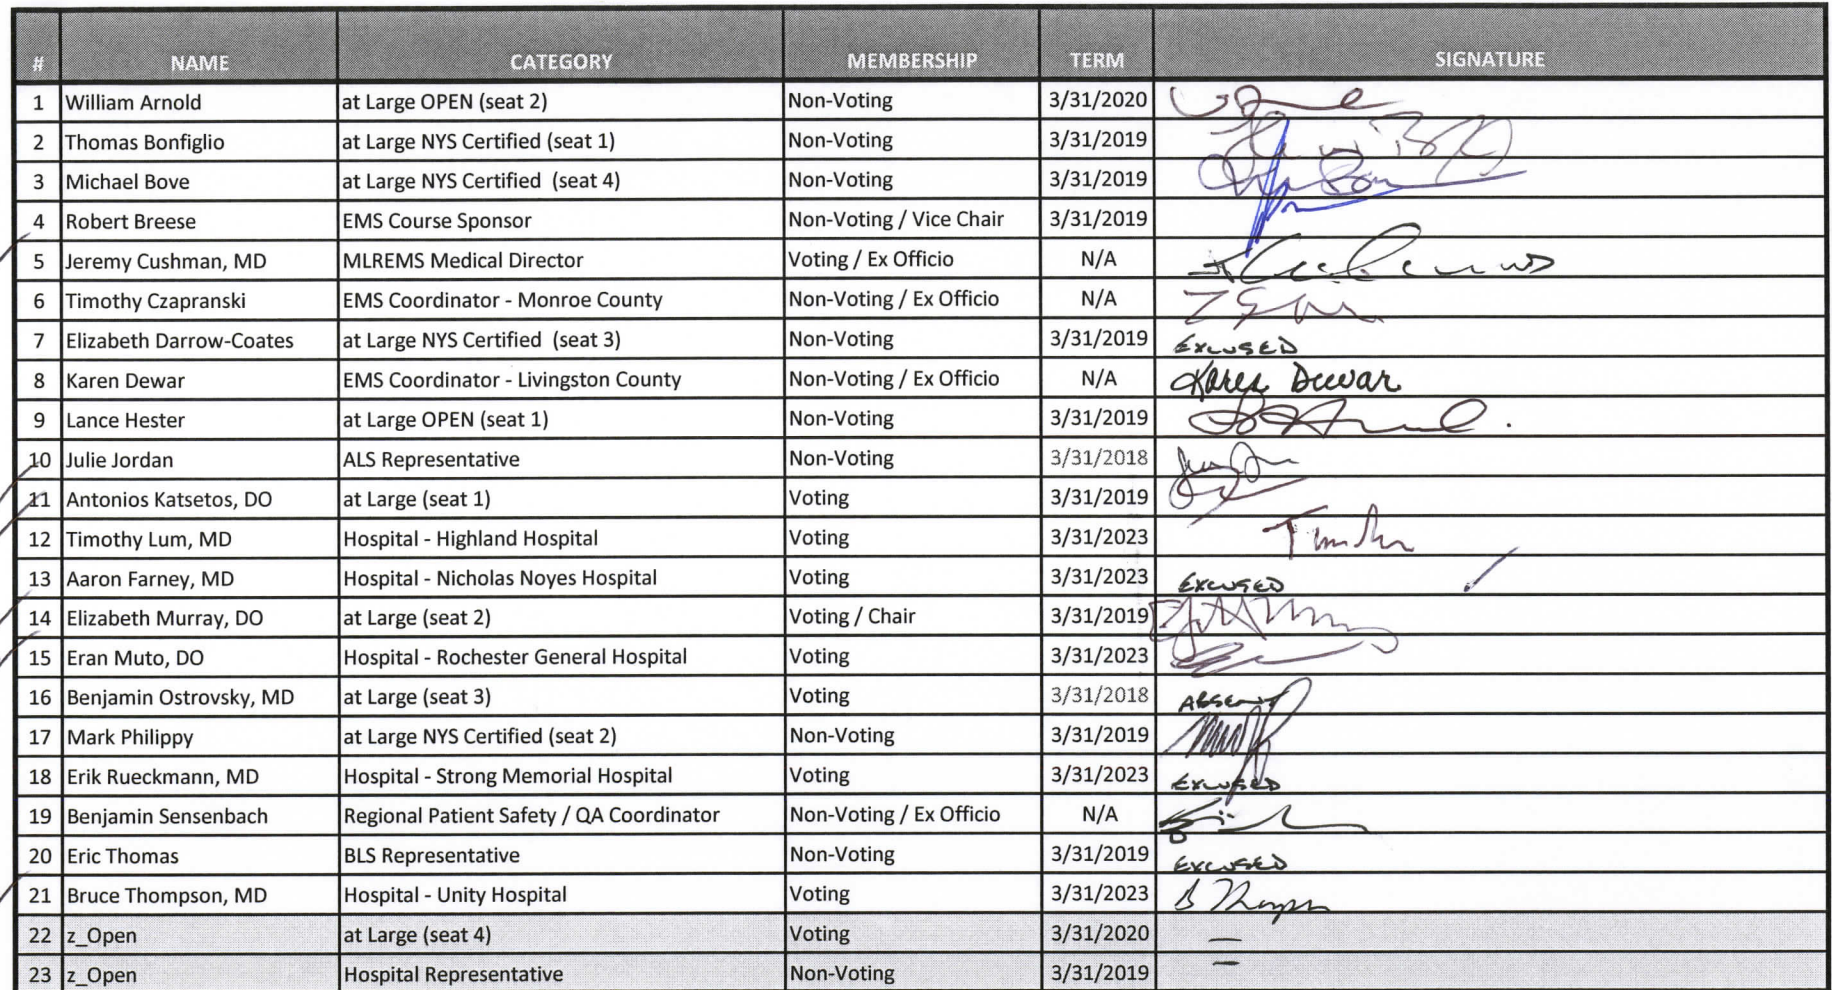 # NAME CATEGORY MEMBERSHIP TERM SIGNATURE
1 William Arnold at Large OPEN (seat 2) Non-Voting 3/31/2020
2 Thomas Bonfiglio at Large NYS Certified (seat 1) Non-Voting 3/31/2019
3 Michael Bove at Large NYS Certified (seat 4) Non-Voting 3/31/2019
4 Robert Breese EMS Course Sponsor Non-Voting / Vice Chair 3/31/2019
5 Jeremy Cushman, MD MLREMS Medical Director Voting / Ex Officio N/A
6 Timothy Czapranski EMS Coordinator - Monroe County Non-Voting / Ex Officio N/A
7 Elizabeth Darrow-Coates at Large NYS Certified (seat 3) Non-Voting 3/31/2019 EXCUSED
8 Karen Dewar EMS Coordinator - Livingston County Non-Voting / Ex Officio N/A Karen Dewar
9 Lance Hester at Large OPEN (seat 1) Non-Voting 3/31/2019
10 Julie Jordan ALS Representative Non-Voting 3/31/2018
11 Antonios Katsetos, DO at Large (seat 1) Voting 3/31/2019
12 Timothy Lum, MD Hospital - Highland Hospital Voting 3/31/2023
13 Aaron Farney, MD Hospital - Nicholas Noyes Hospital Voting 3/31/2023 EXCUSED
14 Elizabeth Murray, DO at Large (seat 2) Voting / Chair 3/31/2019
15 Eran Muto, DO Hospital - Rochester General Hospital Voting 3/31/2023
16 Benjamin Ostrovsky, MD at Large (seat 3) Voting 3/31/2018 ABSENT
17 Mark Philippy at Large NYS Certified (seat 2) Non-Voting 3/31/2019
18 Erik Rueckmann, MD Hospital - Strong Memorial Hospital Voting 3/31/2023 EXCUSED
19 Benjamin Sensenbach Regional Patient Safety / QA Coordinator Non-Voting / Ex Officio N/A
20 Eric Thomas BLS Representative Non-Voting 3/31/2019 EXCUSED
21 Bruce Thompson, MD Hospital - Unity Hospital Voting 3/31/2023
22 z_Open at Large (seat 4) Voting 3/31/2020 —
23 z_Open Hospital Representative Non-Voting 3/31/2019 —